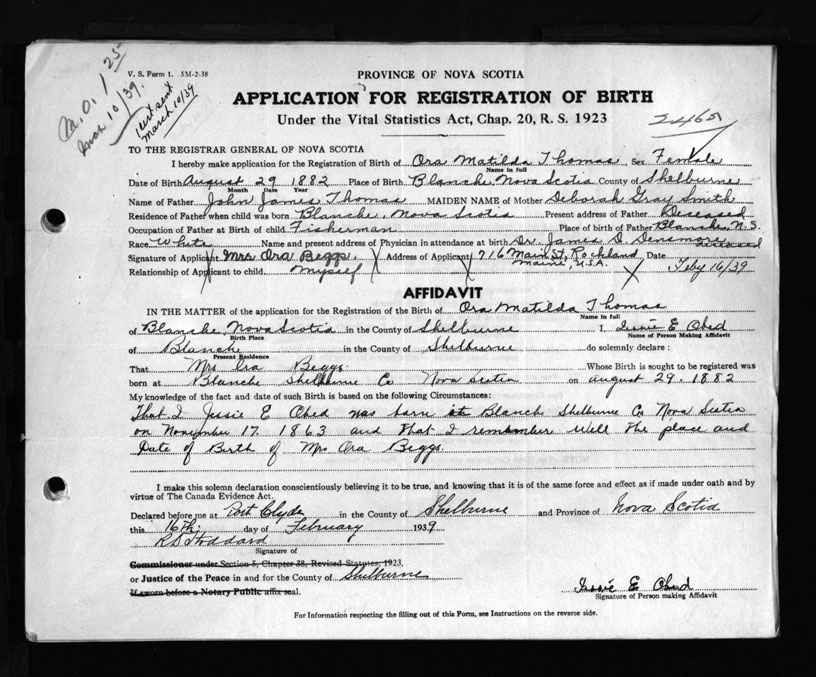 V. S. Form 1. 5M-2-38
PROVINCE OF NOVA SCOTIA
APPLICATION FOR REGISTRATION OF BIRTH
Under the Vital Statistics Act, Chap. 20, R. S. 1923
M.O. 1 25
March 10/39.
Cert sent
March 10/39
2465
TO THE REGISTRAR GENERAL OF NOVA SCOTIA
I hereby make application for the Registration of Birth of Ora Matilda Thomas Sex Female
Name in full
Date of Birth August 29 1882 Place of Birth Blanche, Nova Scotia County of Shelburne
Month Date Year
Name of Father John James Thomas MAIDEN NAME of Mother Deborah Gray Smith
Residence of Father when child was born Blanche, Nova Scotia Present address of Father Deseased
Occupation of Father at Birth of child Fisherman Place of birth of Father Blanche, N.S.
Race White Name and present address of Physician in attendance at birth Dr. James D. Densmore deseased
Signature of Applicant Mrs Ora Beggs. Address of Applicant 216 Main St, Rockland Maine, U.S.A. Date Feby 16/39
Relationship of Applicant to child. myself
AFFIDAVIT
IN THE MATTER of the application for the Registration of the Birth of Ora Matilda Thomas
Name in full
of Blanche, Nova Scotia in the County of Shelburne I, Jessie E Obed
Birth Place Name of Person Making Affidavit
of Blanche in the County of Shelburne do solemnly declare:
Present Residence
That Mrs Ora Beggs Whose Birth is sought to be registered was
born at Blanche Shelburne Co Nova Scotia on august 29. 1882
My knowledge of the fact and date of such Birth is based on the following Circumstances:
That I Jessie E Obed was born at Blanche Shelburne Co Nova Scotia
on November 17. 1863 and that I remember well the place and
Date of Birth of Mrs Ora Beggs.
I make this solemn declaration conscientiously believing it to be true, and knowing that it is of the same force and effect as if made under oath and by
virtue of The Canada Evidence Act.
Declared before me at Port Clyde in the County of Shelburne and Province of Nova Scotia
this 16th. day of February 1939
R S Stoddard
Signature of
Commissioner under Section 5, Chapter 38, Revised Statutes, 1923,
or Justice of the Peace in and for the County of Shelburne
If sworn before a Notary Public affix seal.
Jessie E Obed
Signature of Person making Affidavit
For Information respecting the filling out of this Form, see Instructions on the reverse side.